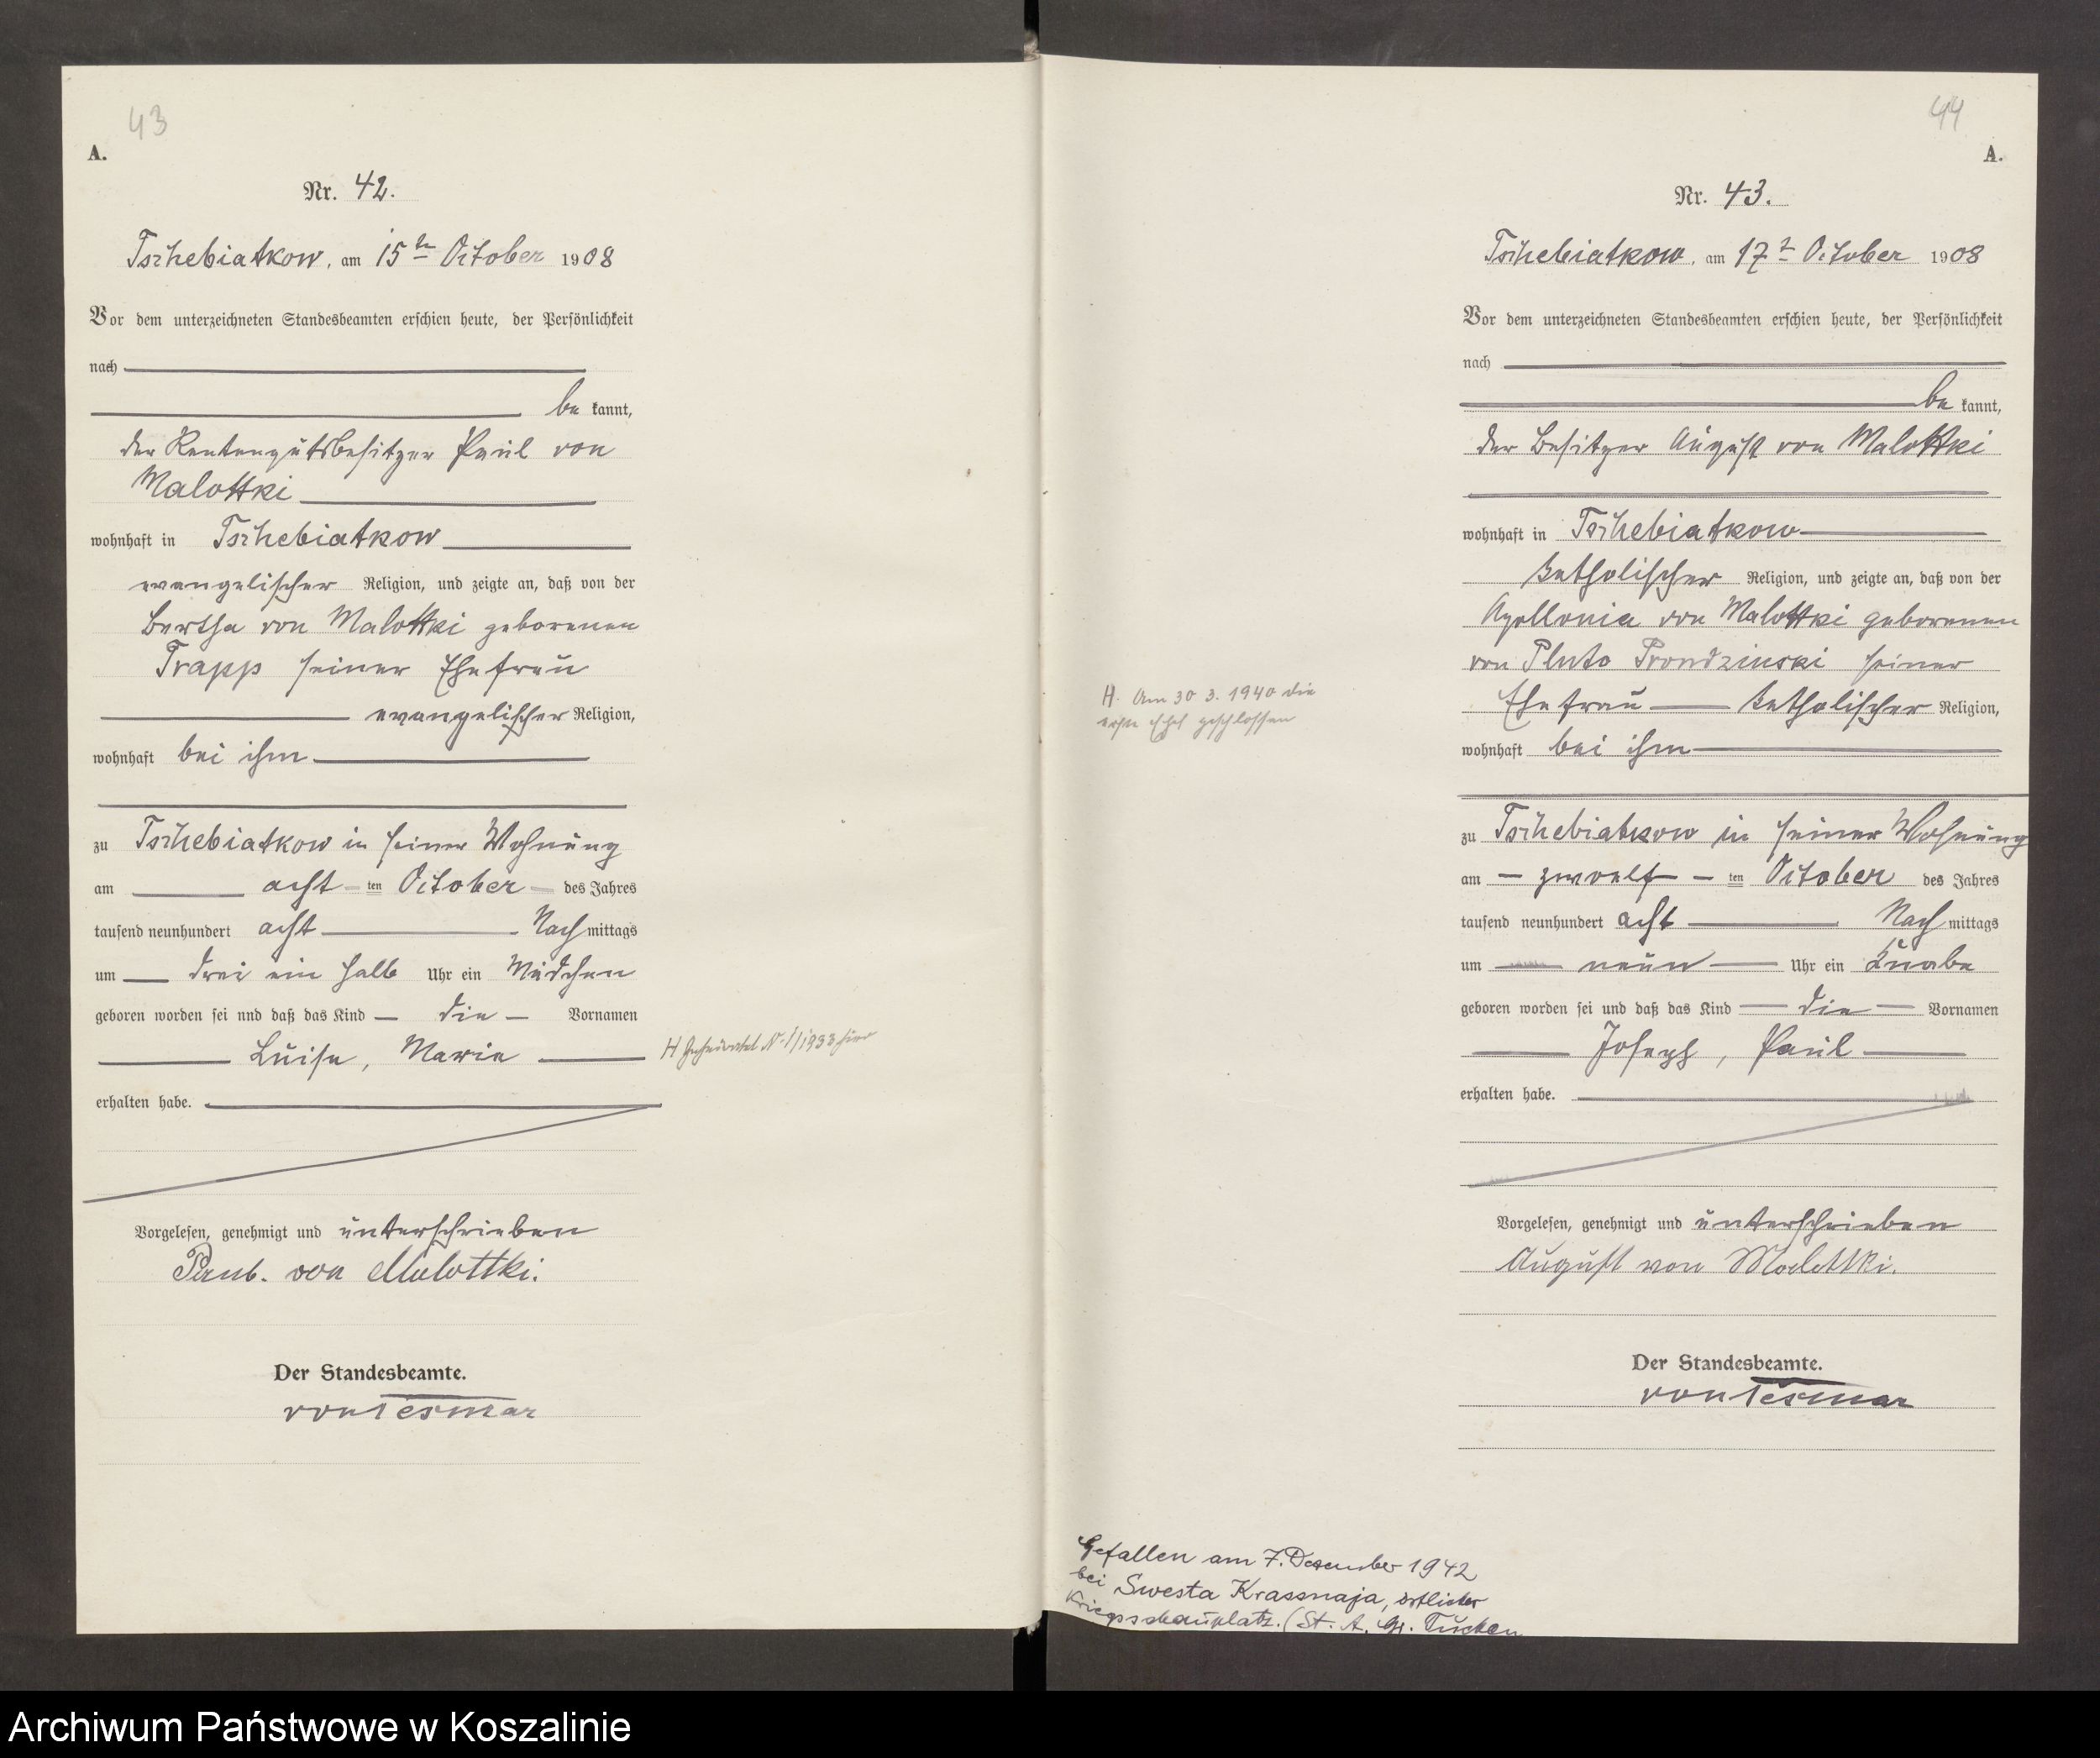 43
A.
Nr. 42.
Tschebiatkow, am 15ten October 1908
Vor dem unterzeichneten Standesbeamten erschien heute, der Persönlichkeit
nach
be kannt,
der Rentengutsbesitzer Paul von
Malottki
wohnhaft in Tschebiatkow
evangelischer Religion, und zeigte an, daß von der
Bertha von Malottki geborenen
Trapp seiner Ehefrau
evangelischer Religion,
wohnhaft bei ihm
zu Tschebiatkow in seiner Wohnung
am acht ten October des Jahres
tausend neunhundert acht Nach mittags
um drei ein halb Uhr ein Mädchen
geboren worden sei und daß das Kind die Vornamen
Luise, Marie
H Geheiratet Nr. 1/1933 hier
erhalten habe.
Vorgelesen, genehmigt und unterschrieben
Paul von Malottki.
Der Standesbeamte.
von Tesmar
44
A.
Nr. 43.
Tschebiatkow, am 17t October 1908
Vor dem unterzeichneten Standesbeamten erschien heute, der Persönlichkeit
nach
be kannt,
der Besitzer August von Malottki
wohnhaft in Tschebiatkow
katholischer Religion, und zeigte an, daß von der
Apollonia von Malottki geborenen
von Pluto Prondzinski seiner
Ehefrau katholischer Religion,
wohnhaft bei ihm
H. Am 30 3. 1940 die
erste Ehe geschlossen
zu Tschebiatkow in seiner Wohnung
am zwoelf ten October des Jahres
tausend neunhundert acht Nach mittags
um neun Uhr ein Knabe
geboren worden sei und daß das Kind die Vornamen
Joseph, Paul
erhalten habe.
Vorgelesen, genehmigt und unterschrieben
August von Malottki.
Der Standesbeamte.
von Tesmar
Gefallen am 7. Dezember 1942
bei Swesta Krassnaja, östlicher
Kriegsschauplatz. (St. A. Gr. Tuchen
Archiwum Państwowe w Koszalinie